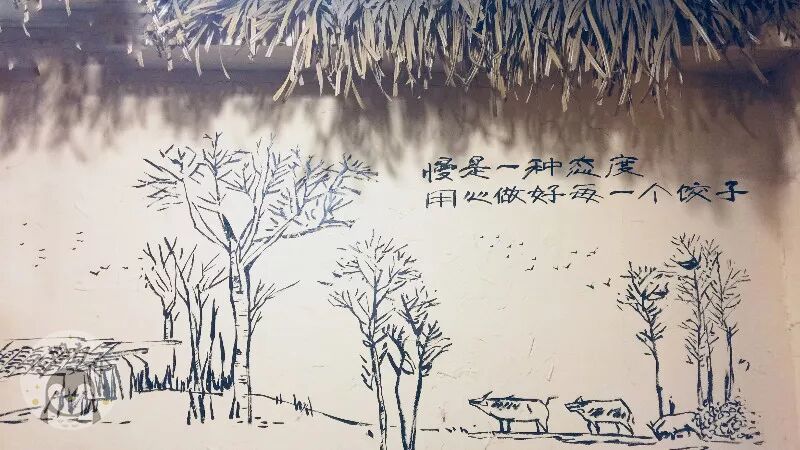 慢是一种态度
用心做好每一个饺子